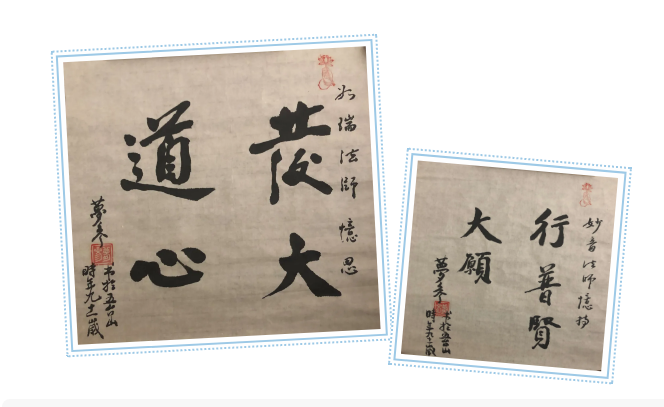 如瑞法師憶思
發大
道心
夢參
書於五台山
時年九十二歲
妙音法師憶持
行普賢
大願
夢參
書於五台山
時年九十二歲